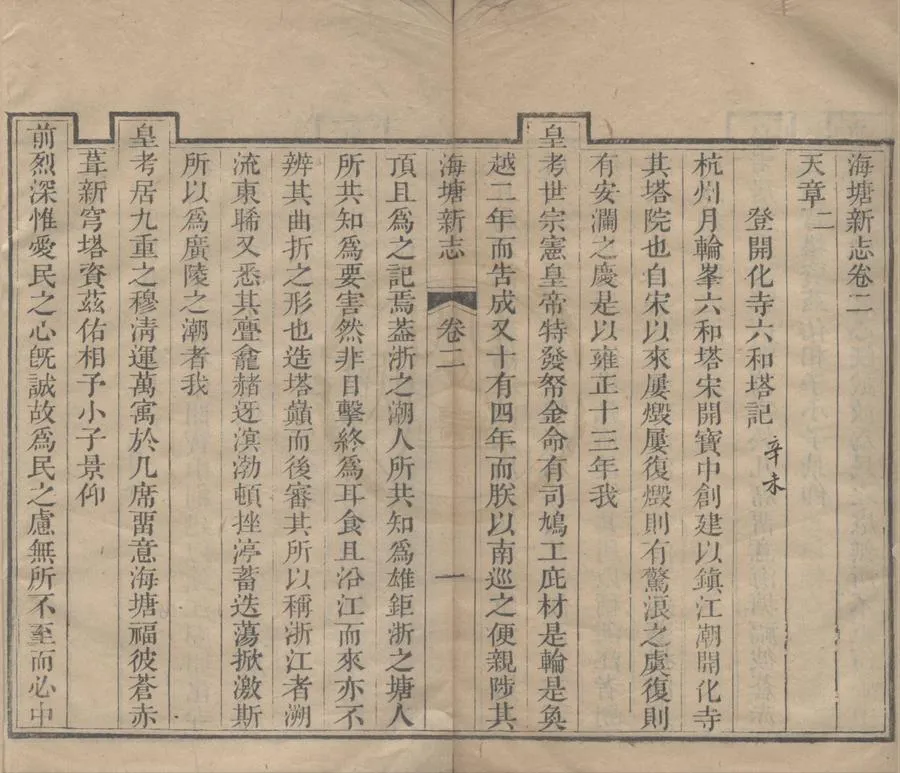 海塘新志卷二
天章二
登開化寺六和塔記 辛未
杭州月輪峯六和塔宋開寶中創建以鎮江潮開化寺
其塔院也自宋以來屢燬屢復燬則有驚浪之虞復則
有安瀾之慶是以雍正十三年我
皇考世宗憲皇帝特發帑金命有司鳩工庀材是輪是奐
越二年而告成又十有四年而朕以南巡之便親陟其
海塘新志 卷二 一
頂且爲之記焉葢浙之潮人所共知爲雄鉅浙之塘人
所共知爲要害然非目擊終爲耳食且沿江而來亦不
辨其曲折之形也造塔巔而後審其所以稱浙江者溯
流東睎又悉其亹龕赭迓溟渤頓挫渟蓄迭蕩掀激斯
所以爲廣陵之潮者我
皇考居九重之穆清運萬寓於几席畱意海塘福彼蒼赤
葺新穹塔資茲佑相予小子景仰
前烈深惟愛民之心旣誠故爲民之慮無所不至而必中